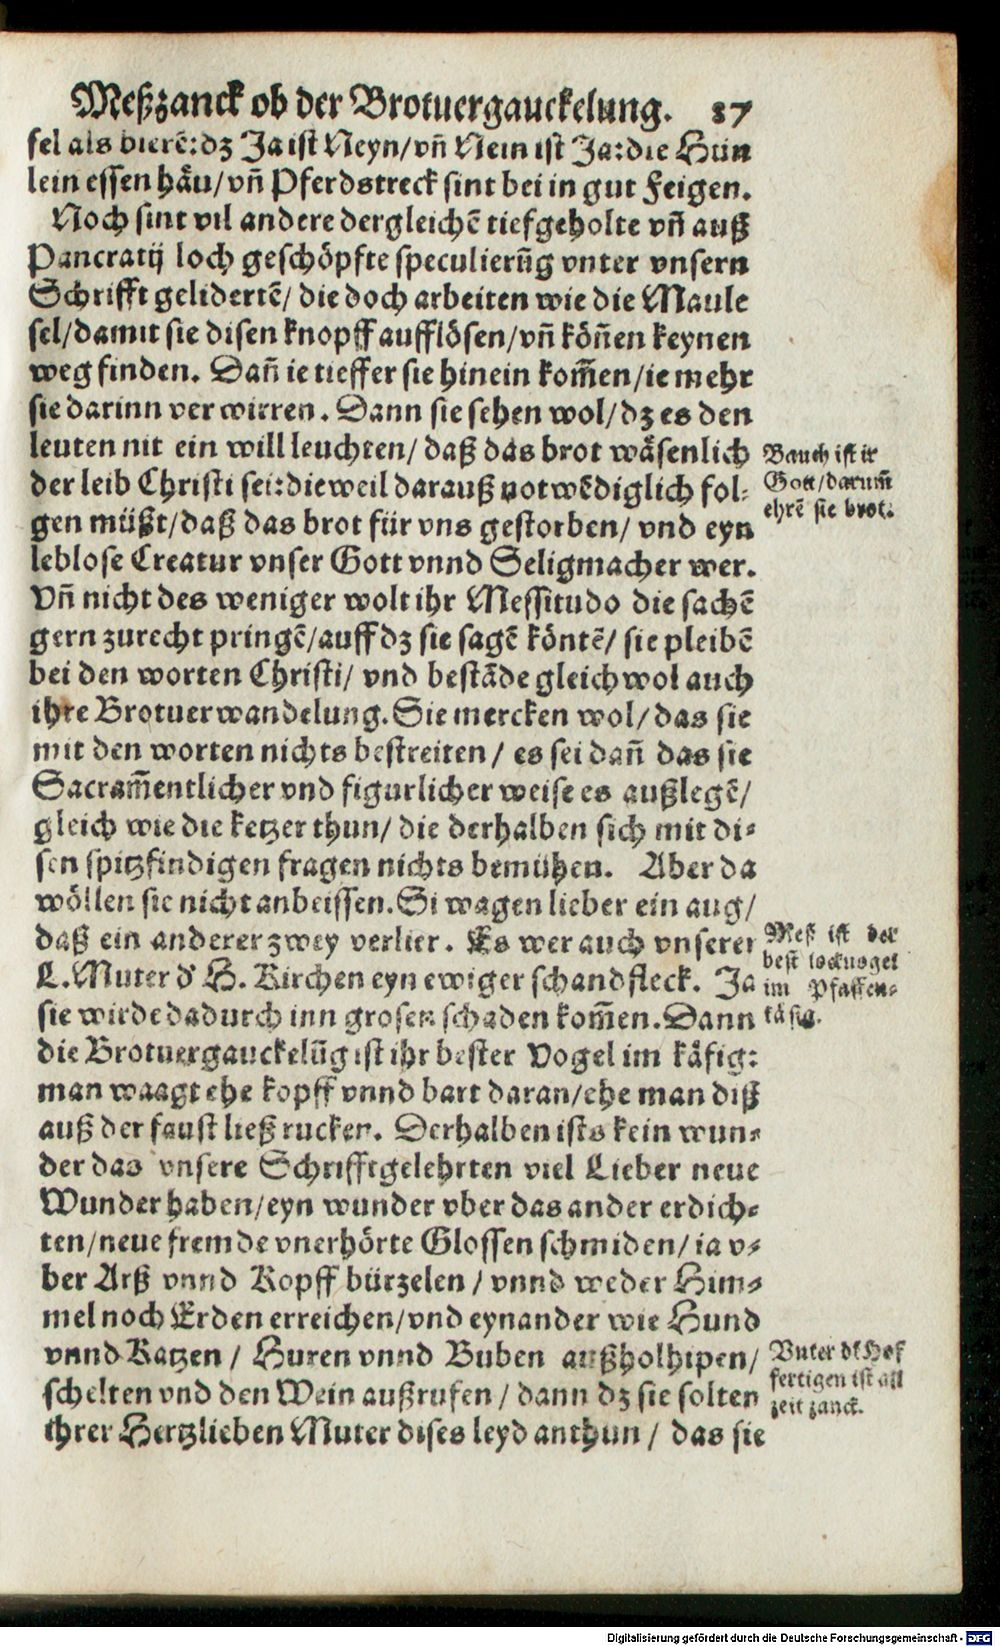 Meßzanck ob der Brotuergauckelung. 87
fel als bierẽ: dz Ja ist Neyn/ vñ Nein ist Ja: die Hün
lein essen häu/ vñ Pferdstreck sint bei in gut Feigen.
Noch sint vil andere dergleichẽ tiefgeholte vñ auß
Pancratij loch geschöpfte speculierũg vnter vnsern
Schrifft gelidertẽ/ die doch arbeiten wie die Maule
sel/ damit sie disen knopff aufflösen/ vñ köñen keynen
weg finden. Dañ ie tieffer sie hinein kom̃en/ ie mehr
sie darinn verwirren. Dann sie sehen wol/ dz es den
leuten nit ein will leuchten/ daß das brot wäsenlich
der leib Christi sei: dieweil darauß notwẽdiglich fol-
gen müßt/ daß das brot für vns gestorben/ vnd eyn
leblose Creatur vnser Gott vnnd Seligmacher wer.
Vñ nicht des weniger wolt ihr Messitudo die sachẽ
gern zurecht pringẽ/ auff dz sie sagẽ köntẽ/ sie pleibẽ
bei den worten Christi/ vnd bestãde gleich wol auch
ihre Brotuerwandelung. Sie mercken wol/ das sie
mit den worten nichts bestreiten/ es sei dañ das sie
Sacram̃entlicher vnd figurlicher weise es außlegẽ/
gleich wie die ketzer thun/ die derhalben sich mit di-
sen spitzfindigen fragen nichts bemühen. Aber da
wöllen sie nicht anbeissen. Si wagen lieber ein aug/
daß ein anderer zwey verlier. Es wer auch vnserer
L. Muter d' H. Kirchen eyn ewiger schandfleck. Ja
sie wirde dadurch inn grosen schaden kom̃en. Dann
die Brotuergauckelũg ist ihr bester Vogel im käfig:
man waagt ehe kopff vnnd bart daran/ ehe man diß
auß der faust ließ rucken. Derhalben ists kein wun-
der das vnsere Schrifftgelehrten viel Lieber neue
Wunder haben/ eyn wunder vber das ander erdich-
ten/ neue fremde vnerhörte Glossen schmiden/ ia v-
ber Arß vnnd Kopff bürzelen/ vnnd weder Him-
mel noch Erden erreichen/ vnd eynander wie Hund
vnnd Katzen/ Huren vnnd Buben außholhipen/
schelten vnd den Wein außrufen/ dann dz sie solten
ihrer Hertzlieben Muter dises leyd anthun/ das sie
Bauch ist ir
Gott/ darum̃
ehrẽ sie brot.
Meß ist der
best lockuogel
im Pfaffen-
käfig.
Vnter dẽ Hof
fertigen ist all
zeit zanck.
Digitalisierung gefördert durch die Deutsche Forschungsgemeinschaft - DFG